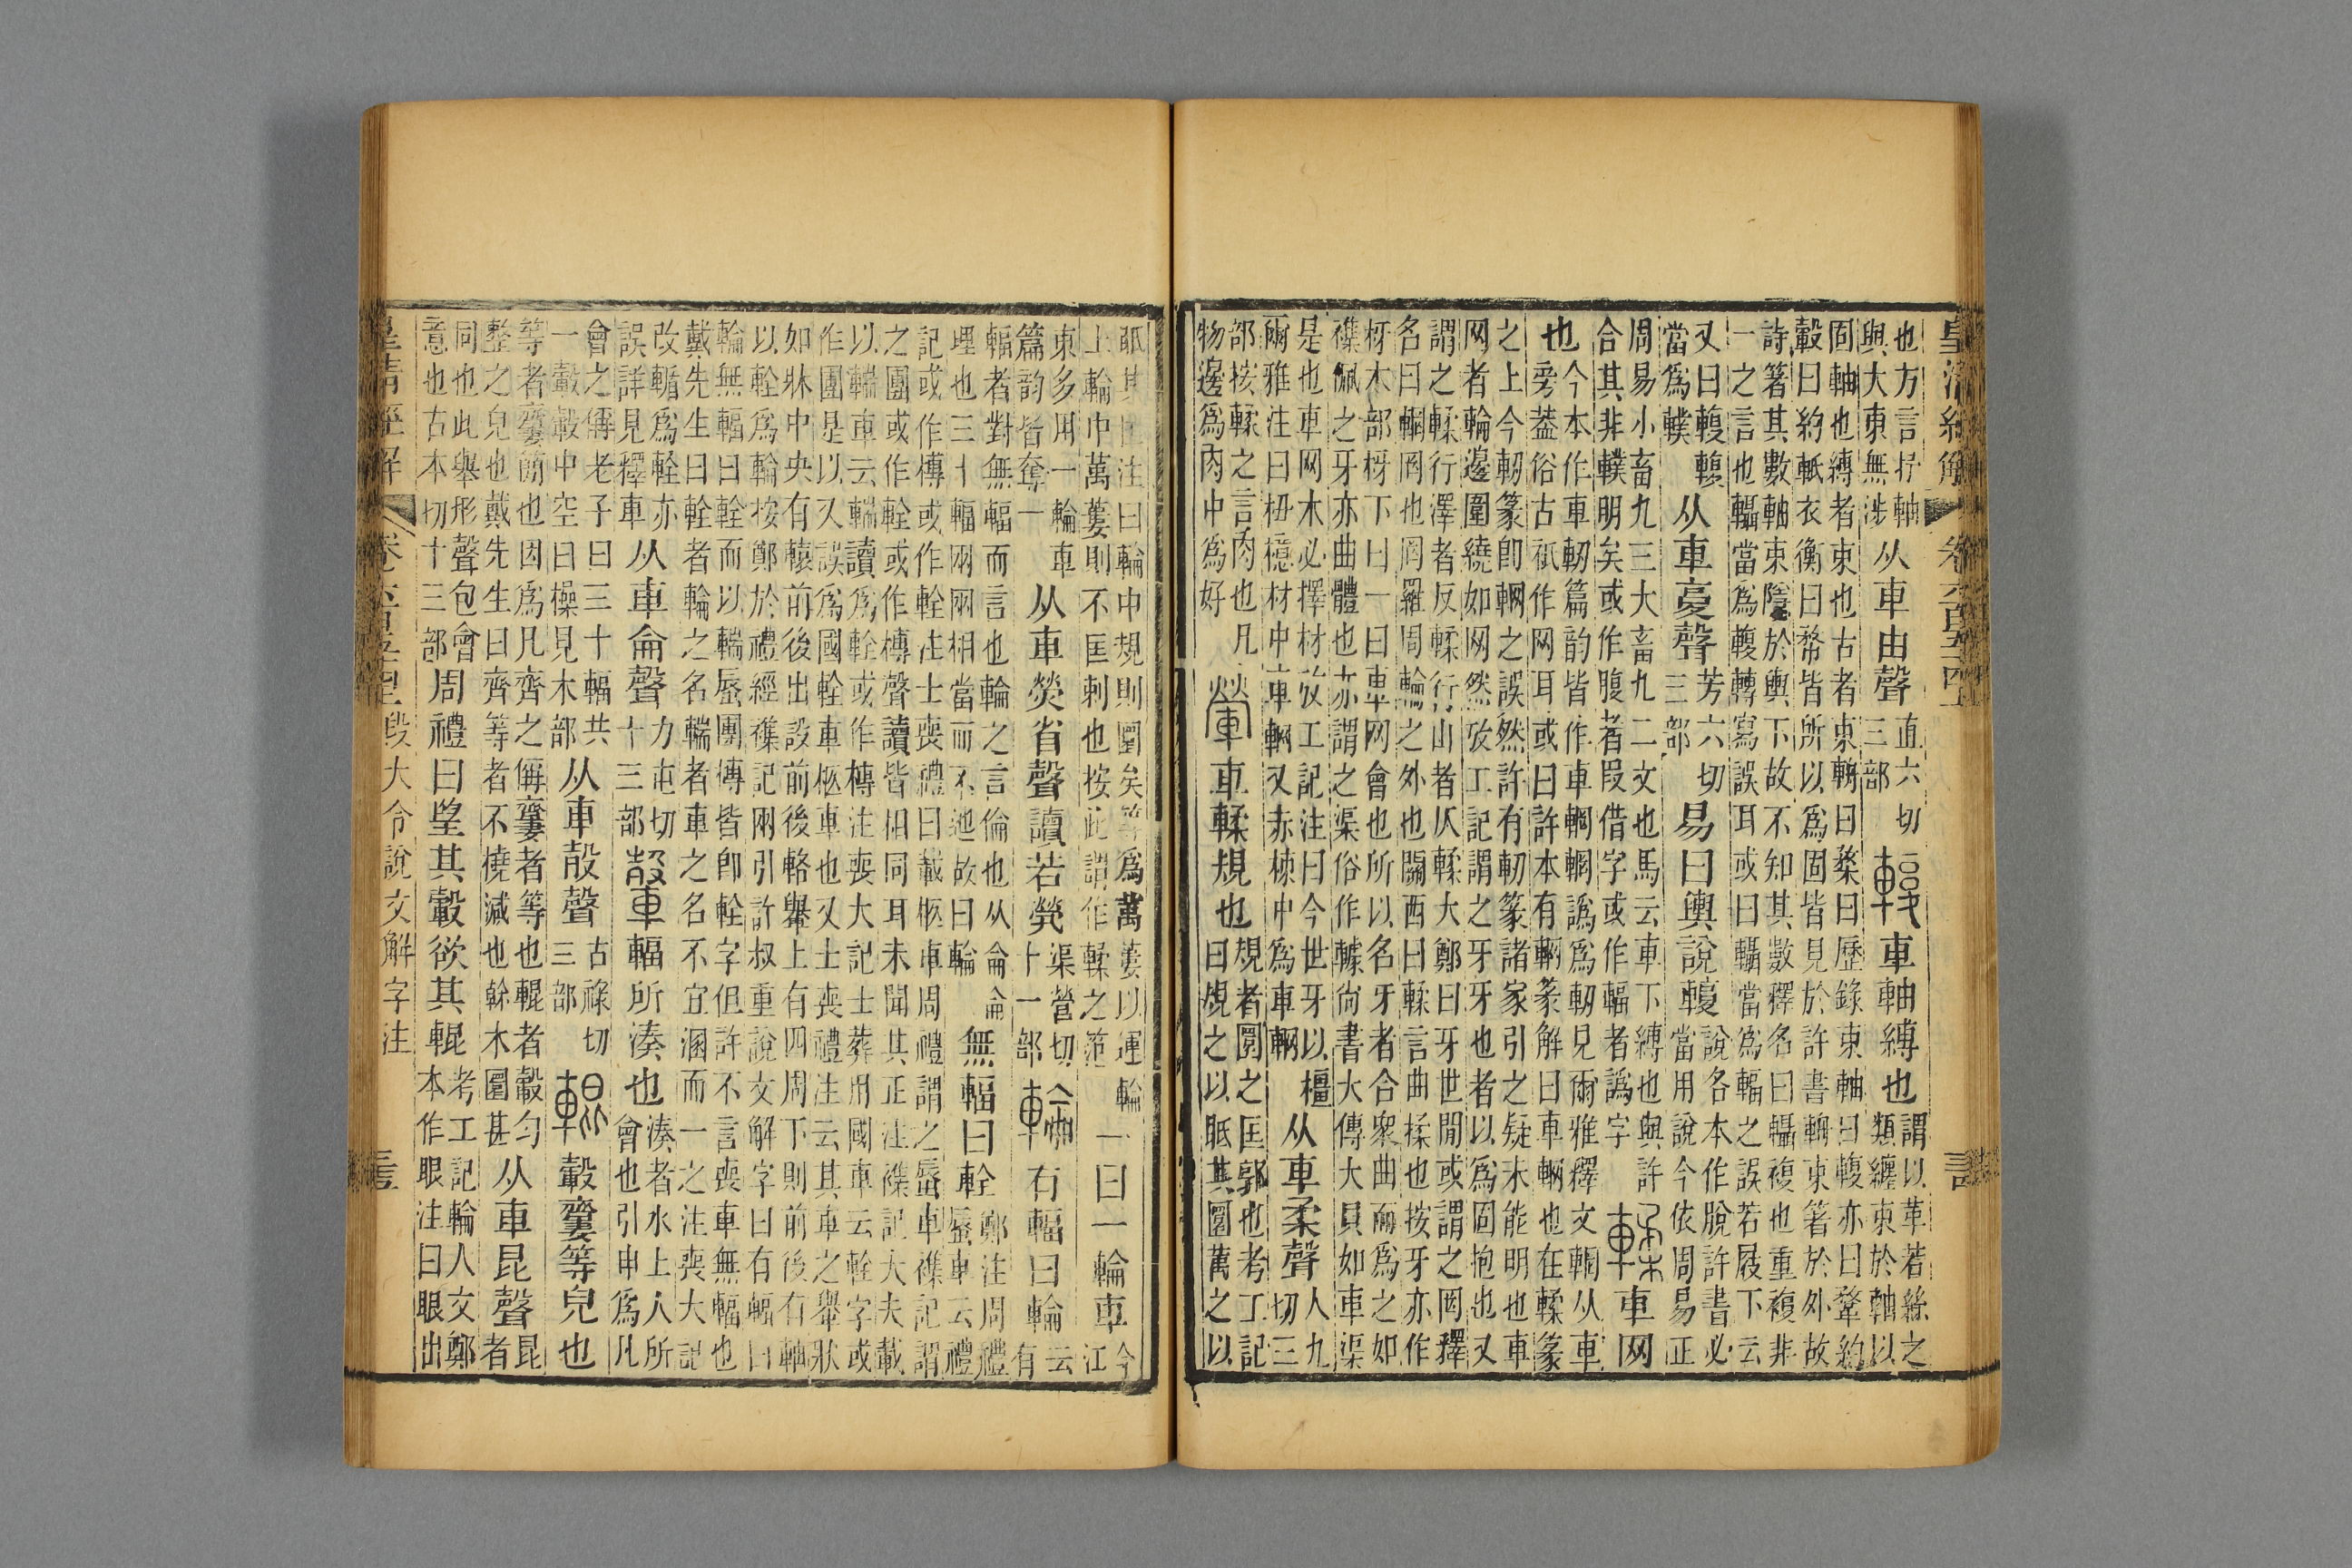 皇清經解 卷六百五十四
也方言抒軸與大東無涉从車由聲直六切三部輹車軸縛也謂以革若絲之類纏束於軸以
固軸也縛者束也古者束輈曰楘曰歷錄束軸曰輹亦曰鞏約轂曰約軝衣衡曰幦皆所以爲固皆見於許書輈束箸於外故
詩箸其數軸束隱於輿下故不知其數釋名曰䡩複也重複非一之言也䡩當爲輹轉寫誤耳或曰䡩當爲輻之誤若屐下云
又曰輹輹當爲轐从車㚆聲芳六切三部易曰輿說輹說各本作脫許書必當用說今依周易正
周易小畜九三大畜九二文也馬云車下縛也與許合其非轐明矣或作腹者叚借字或作輻者譌字輮車网
也今本作車軔篇韵皆作車輞輞譌爲軔見爾雅釋文輞从車旁葢俗古祇作网耳或曰許本有輞篆解曰車輞也在輮篆
之上今軔篆卽輞之誤然許有軔篆諸家引之疑未能明也車网者輪邊圍繞如网然攷工記謂之牙牙也者以爲固抱也又
謂之輮行澤者反輮行山者仄輮大鄭曰牙世閒或謂之罔釋名曰輞罔也罔羅周輪之外也關西曰輮言曲揉也按牙亦作
枒木部枒下曰一曰車网會也所以名牙者合衆曲而爲之如襍佩之牙亦曲體也亦謂之渠俗作尙書大傳大貝如車渠
是也車网木必擇材攷工記注曰今世牙以橿爾雅注曰杻檍材中車輞又赤楝中爲車輞从車柔聲人九切三
部按輮之言肉也凡物邊爲肉中爲好車輮規也規者圜之匡郭也考工記曰規之以眡其圜萬之以
眡其匡注曰輪中規則圜矣等爲萬蔞以運輪上輪中萬蔞則不匡刺也按此謂作輮之笵一曰一輪車今江
東多用一輪車篇韵皆奪一从車熒省聲讀若煢渠營切十一部輪有輻曰輪云有
輻者對無輻而言也輪之言倫也从侖侖理也三十輻兩兩相當而不迆故曰輪無輻曰輇鄭注周禮蜃車云禮
記或作槫或作輇注士喪禮曰載柩車周禮謂之蜃車襍記謂之團或作輇或作槫聲讀皆相同耳未聞其正注襍記大夫載
以輲車云輲讀爲輇或作槫注喪大記士葬用國車云輇字或作團是以又誤爲國輇車柩車也又士喪禮注云其車之轝狀
如牀中央有轅前後出設前後輅轝上有四周下則前後有軸以輇爲輪按鄭於禮經襍記兩引許叔重說文解字曰有輻曰
輪無輻曰輇而以輲蜃團槫皆卽輇字但許不言喪車無輻也戴先生曰輇者輪之名輲者車之名不宜溷而一之注喪大記
改輴爲輇亦誤詳見釋車从車侖聲力屯切十三部轂輻所湊也湊者水上人所會也引申爲凡
會之偁老子曰三十輻共一轂轂中空曰橾見木部从車㱿聲古祿切三部輥轂齎等皃也
等者齎簡也因爲凡齊之偁齎者等也輥者轂勻整之皃也戴先生曰齊等者不橈減也榦木圜甚从車昆聲昆者
同也此舉形聲包會意也古本切十三部周禮曰望其轂欲其輥考工記輪人文鄭本作眼注曰眼出
皇清經解 卷六百五十四 段大令說文解字注